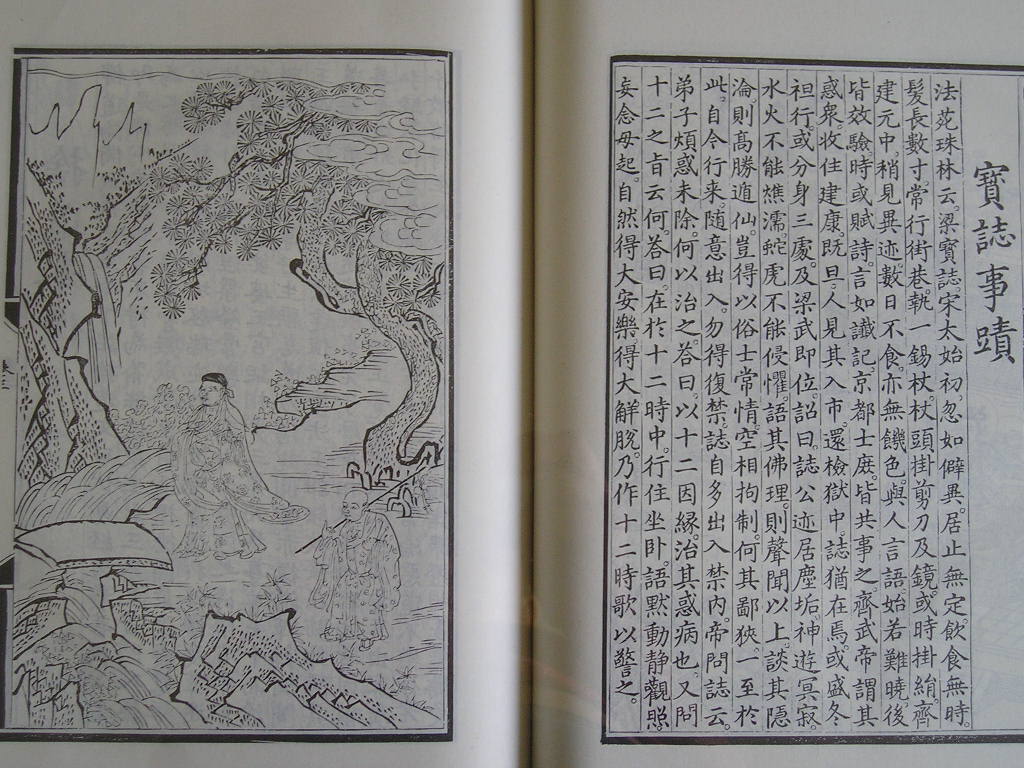 寶誌事蹟
法苑珠林云。梁寶誌。宋太始初。忽如僻異。居止無定。飲食無時。
髮長數寸。常行街巷。執一錫杖。杖頭掛剪刀及鏡。或時掛絹。齊
建元中。稍見異迹。數日不食。亦無饑色。與人言語。始若難曉。後
皆效驗。時或賦詩。言如讖記。京都士庶。皆共事之。齊武帝謂其
惑衆。收住建康。既旦。人見其入市。還檢獄中。誌猶在焉。或盛冬
袒行。或分身三處。及梁武即位。詔曰。誌公迹居塵垢。神遊冥寂。
水火不能燋濡。蛇虎不能侵懼。語其佛理。則聲聞以上。談其隱
淪。則高勝遁仙。豈得以俗士常情。空相拘制。何其鄙狹。一至於
此。自今行来随意出入。勿得復禁。誌自多出入禁内。帝問誌云。
弟子煩惑未除。何以治之。答曰。以十二因縁。治其惑病也。又問
十二之旨云何。答曰。在於十二時中。行住坐卧。語默動静觀照。
妄念毋起。自然得大安樂。得大解脱。乃作十二時歌以警之。
卷三